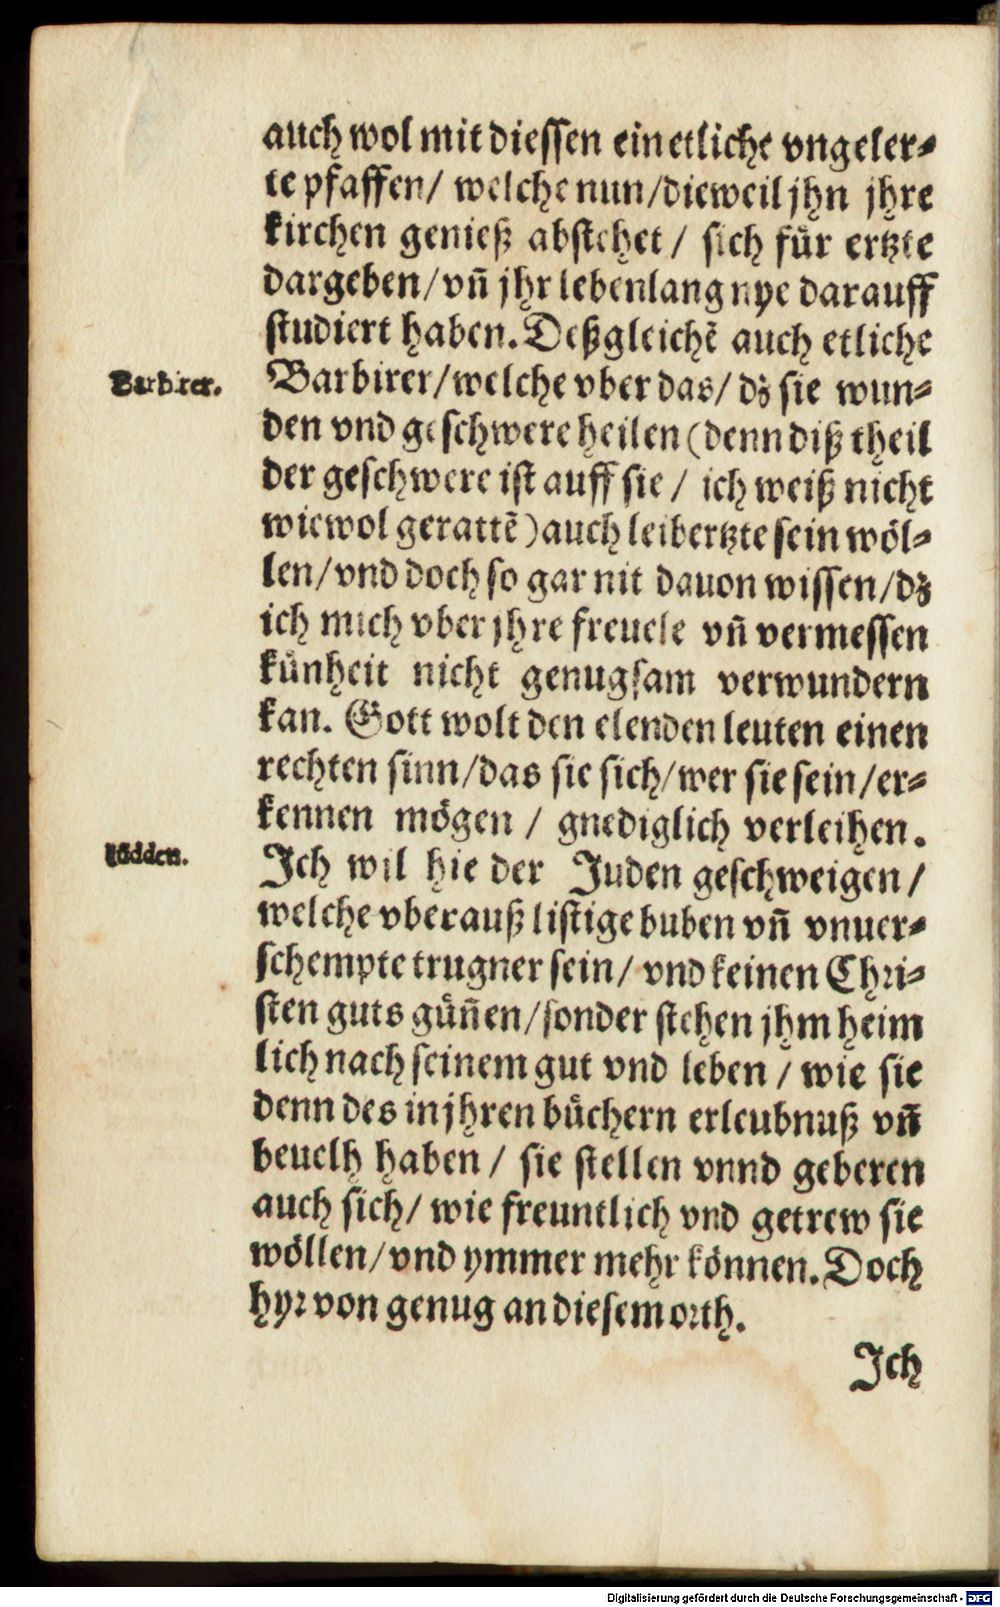 auch wol mit diessen ein etliche vngeler⸗
te pfaffen/ welche nun/dieweil jhn jhre
kirchen genieß abstehet/ sich für ertzte
dargeben/vñ jhr lebenlang nye darauff
studiert haben. Deßgleichẽ auch etliche
Barbirer.
Barbirer/welche vber das/ dz sie wun⸗
den vnd geschwere heilen (denn diß theil
der geschwere ist auff sie / ich weiß nicht
wiewol gerattẽ) auch leibertzte sein wöl⸗
len/vnd doch so gar nit dauon wissen/dz
ich mich vber jhre freuele vñ vermessen
künheit nicht genugsam verwundern
kan. Gott wolt den elenden leuten einen
rechten sinn/das sie sich/wer sie sein/er⸗
kennen mögen / gnediglich verleihen.
Jüdden.
Ich wil hie der Juden geschweigen/
welche vberauß listige buben vñ vnuer⸗
schempte trugner sein/ vnd keinen Chri⸗
sten guts güñen/sonder stehen jhm heim
lich nach seinem gut vnd leben / wie sie
denn des in jhren büchern erleubnuß vñ
beuelh haben / sie stellen vnnd geberen
auch sich/ wie freuntlich vnd getrew sie
wöllen/vnd ymmer mehr können. Doch
hyr von genug an diesem orth.
Ich
Digitalisierung gefördert durch die Deutsche Forschungsgemeinschaft - DFG